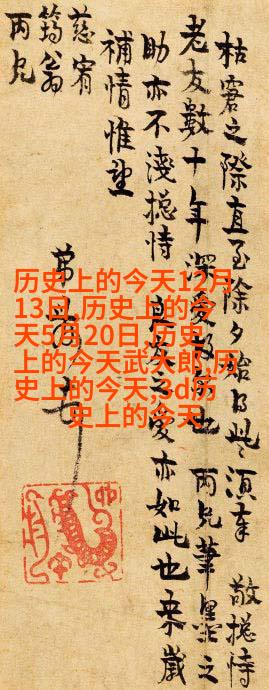 枯窘之際直至除夕始得此須奉 敬摠恃
老友數十年深愛也 丙兄筆墨之
助亦不淺摠恃 之愛亦如此也來歲
補情惟望
慈宥
筠翁
丙兄
弟
历史上的今天12月
13日,历史上的今
天5月20日,历史
上的今天武大郎,历
史上的今天,3d历
史上的今天